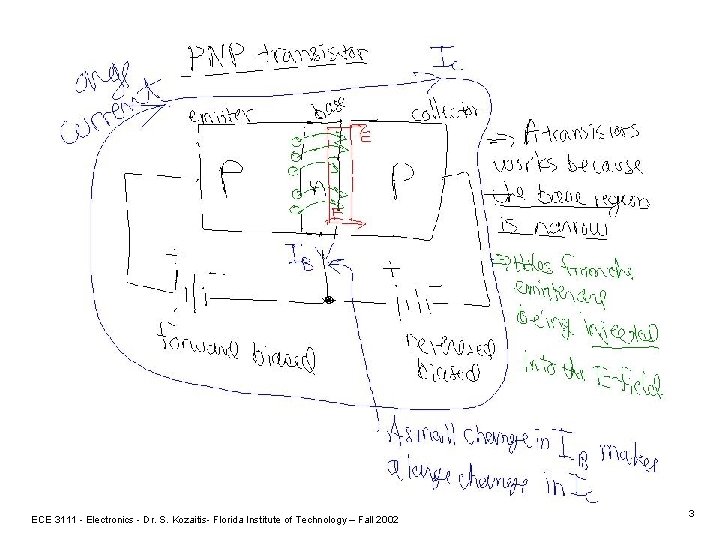 PNP transistor
IC
large
current
emitter
base
collector
E
P
n
P
E
IB
+
-
+
-
forward biased
reversed
biased
⇒ A transistors
works because
the base region
is narrow
⇒ Holes from the
emitter are
being injected
into the E-field
A small change in IB makes
a large change in IC
ECE 3111 - Electronics - Dr. S. Kozaitis- Florida Institute of Technology – Fall 2002
3